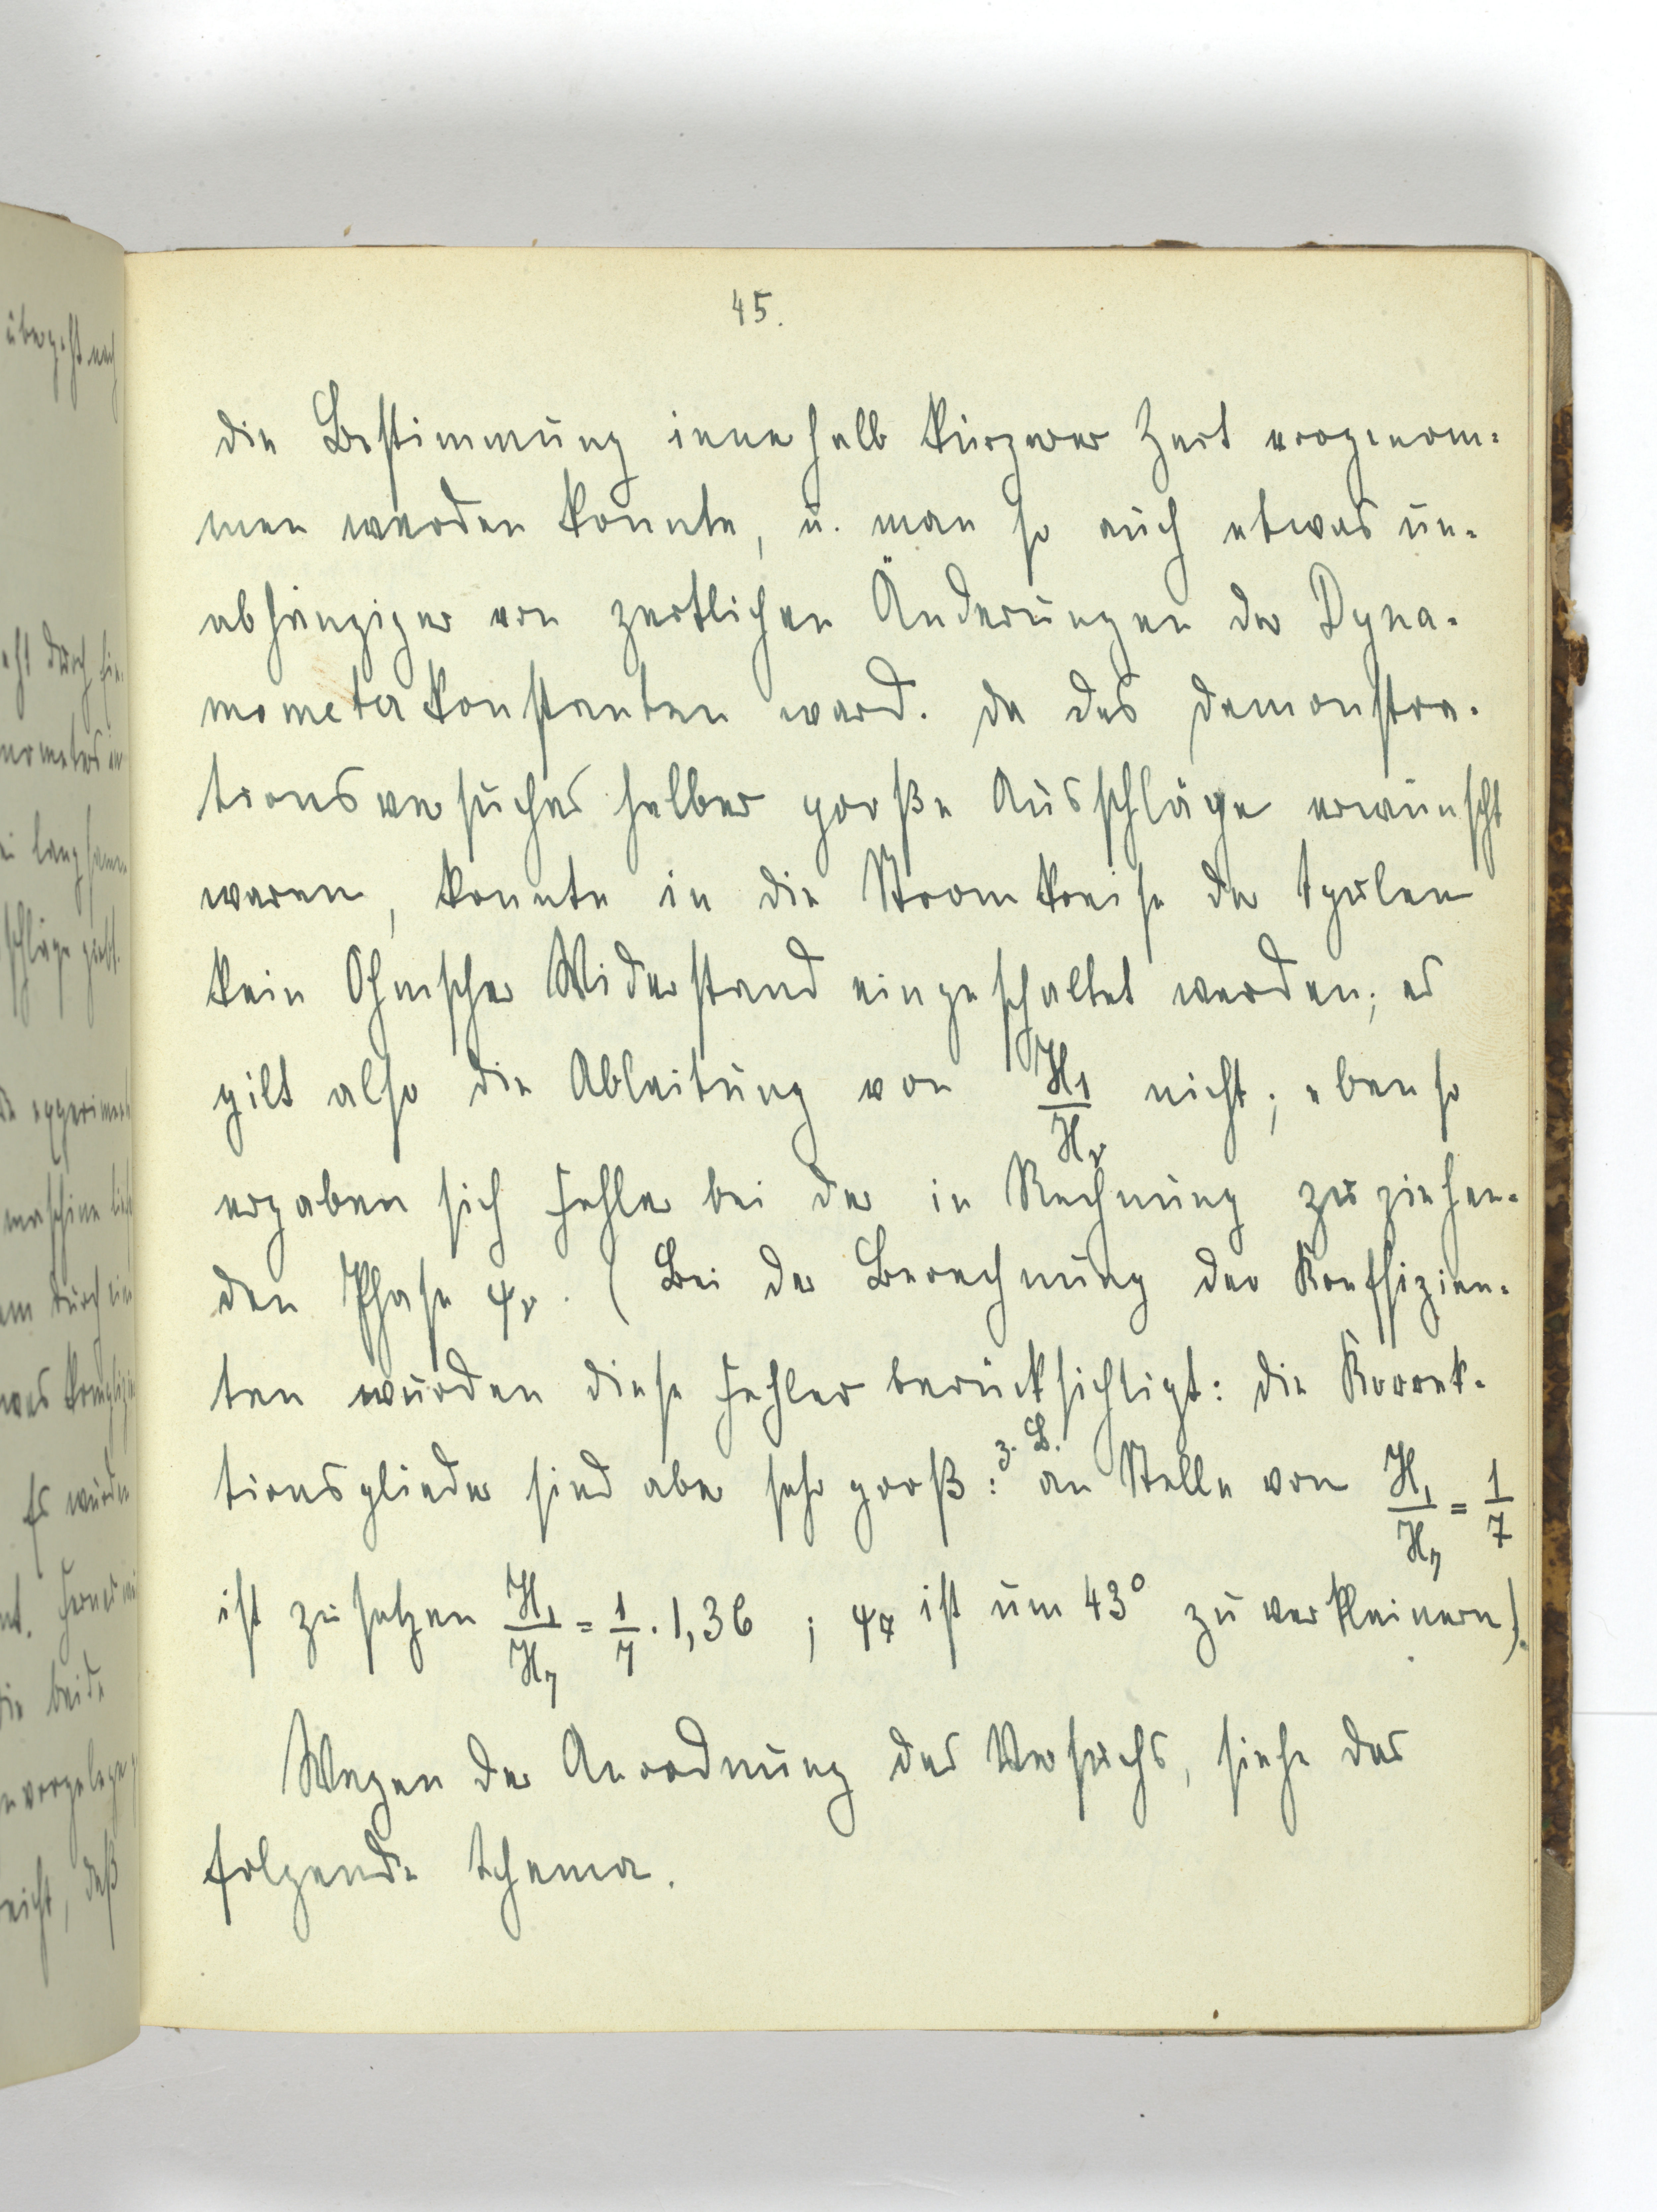 45.
die Bestimmung innerhalb kürzerer Zeit vorgenom-
men werden konnte, u. man so auch etwas un-
abhängiger von zeitlichen Änderungen der Dyna-
mometerkonstanten ward. Da des Demonstra-
tionsversuches halber große Ausschläge erwünscht
waren, konnte in die Stromkreise der Spulen
kein Ohmscher Widerstand eingeschaltet werden; es
gilt also die Ableitung von H₁/Hᵥ nicht; ebenso
ergaben sich Fehler bei der in Rechnung zu ziehen-
den Phase φᵥ. (Bei der Berechnung der Koeffizien-
ten wurden diese Fehler berücksichtigt: die Korrek-
tionsglieder sind aber sehr groß: z. B. an Stelle von H₁/H₇ = 1/7
ist zu setzen H₁/H₇ = 1/7 · 1,36 ; φ₇ ist um 43° zu verkleinern).
Wegen der Anordnung des Versuchs, siehe das
folgende Schema.
übergeht nach
durch
langsam
maschine
durch ein
Es wurde
die beide
nicht, daß